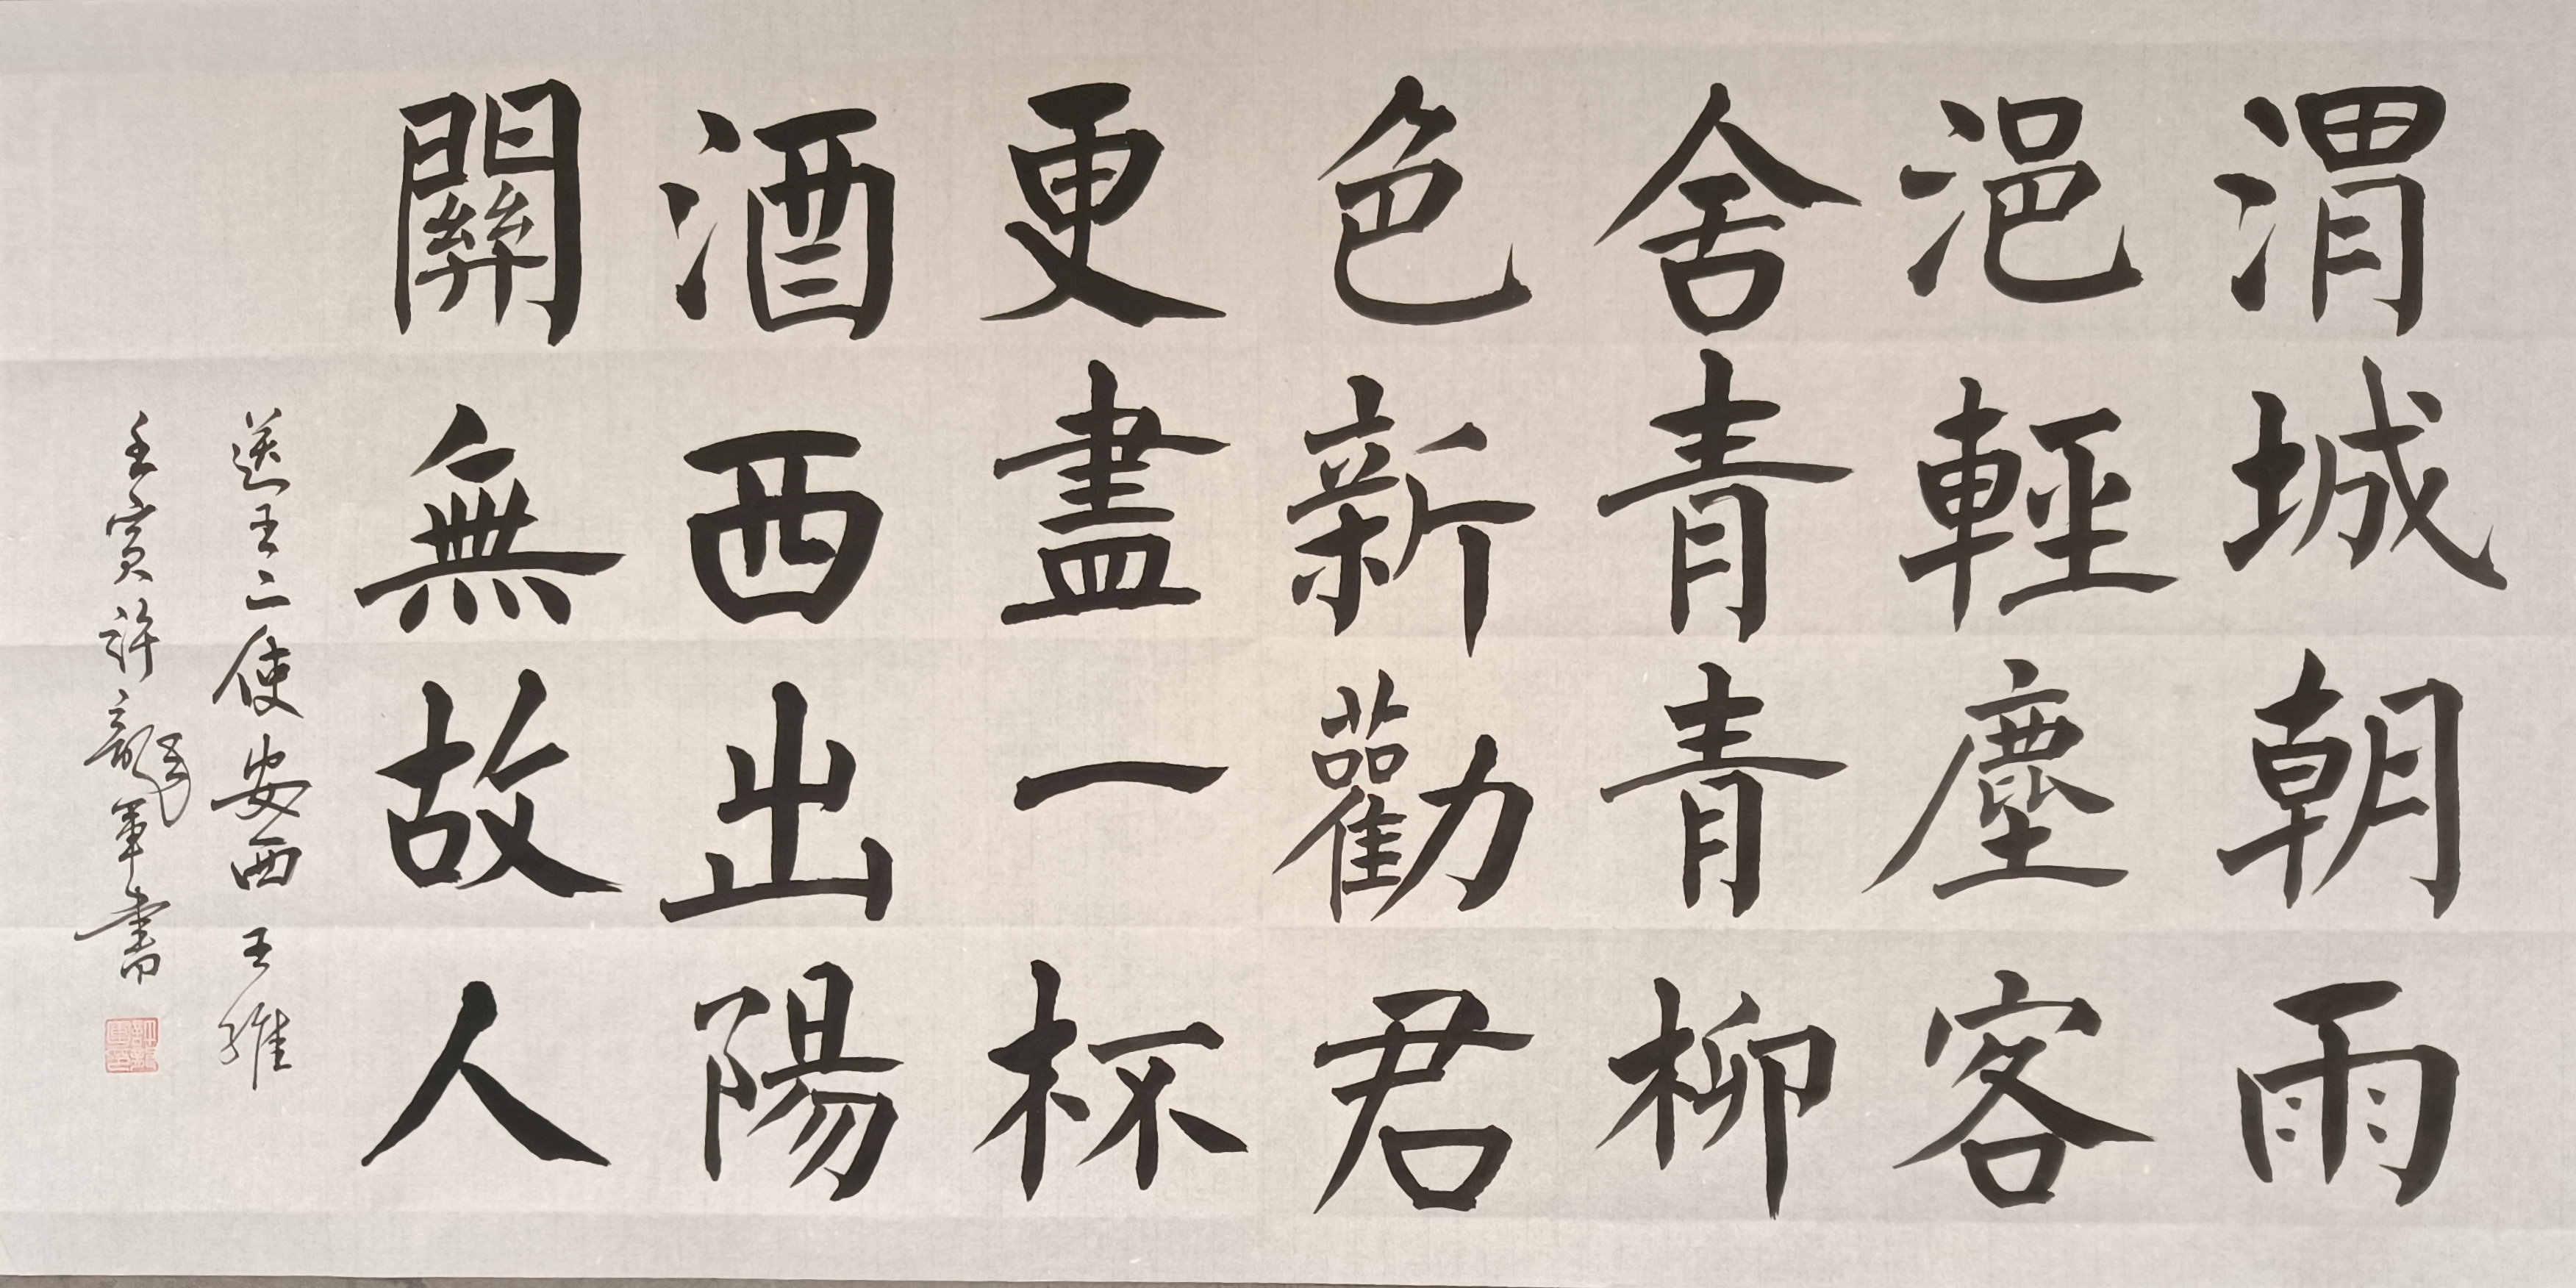 渭城朝雨
浥輕塵客
舍青青柳
色新勸君
更盡一杯
酒西出陽
關無故人
送王二使安西 王維
壬寅許龍軍書